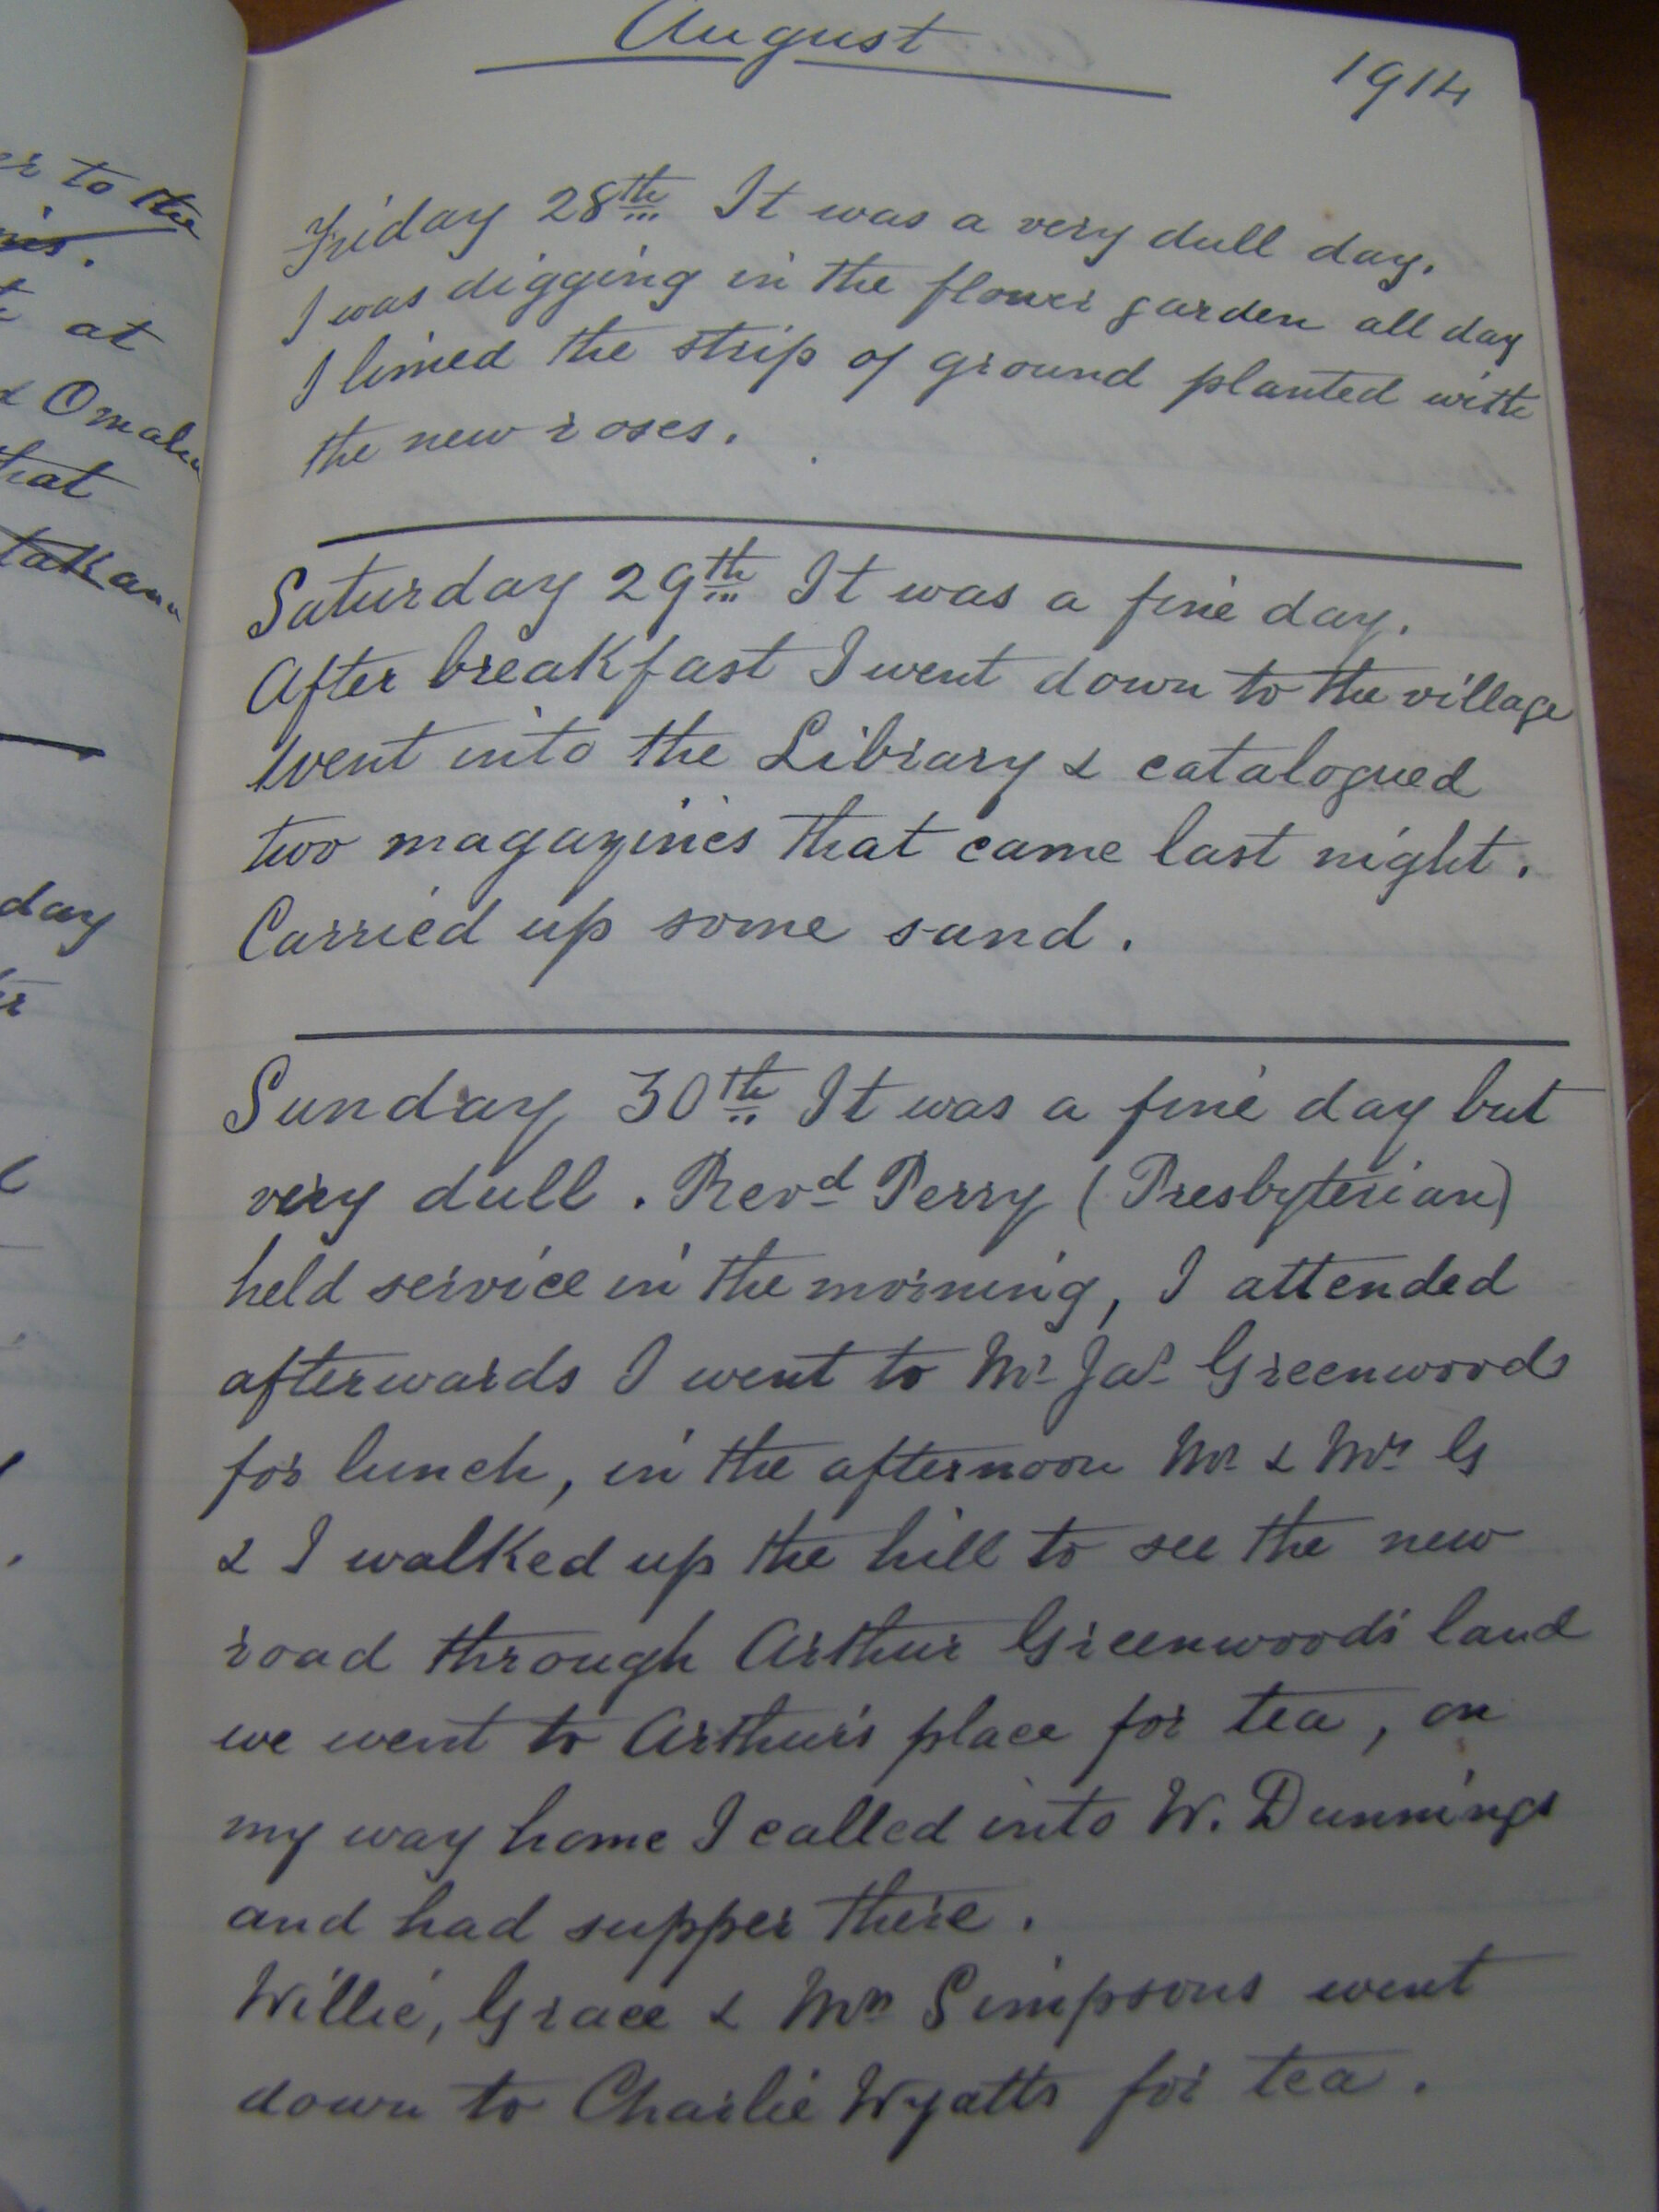 August
1914
er to the
at
& Omaha
that
day
Friday 28th It was a very dull day.
I was digging in the flower garden all day
I limed the strip of ground planted with
the new roses.
Saturday 29th It was a fine day.
After breakfast I went down to the village
went into the Library & catalogued
two magazines that came last night.
Carried up some sand.
Sunday 30th It was a fine day but
very dull. Revd Perry (Presbyterian)
held service in the morning, I attended
afterwards I went to Mr Jas Greenwoods
for lunch, in the afternoon Mr & Mrs G
& I walked up the hill to see the new
road through Arthur Greenwoods land
we went to Arthurs place for tea, on
my way home I called into W. Dunnings
and had supper there.
Willie, Grace & Mrs Simpsons went
down to Charlie Wyatts for tea.